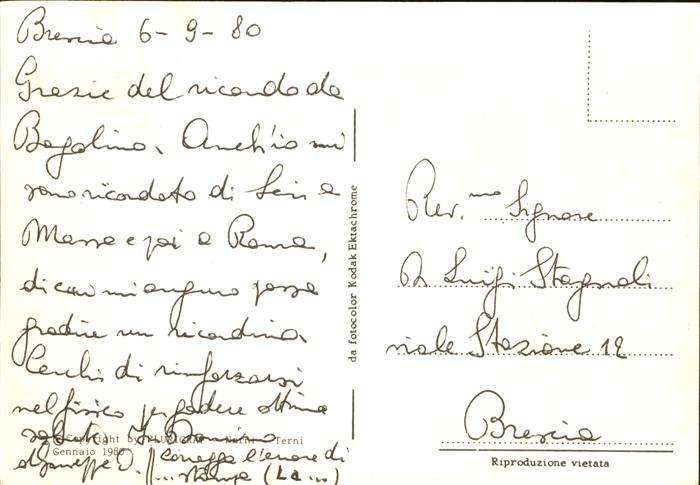 Brescia 6-9-80
Grazie del ricordo da
Bagolino. Anch'io mi
sono ricordato di Lei a
Massa e poi a Roma,
di cui mi auguro possa
gradire un ricordino.
Cerchi di rinforzarsi
nel fisico per godere ottima
salute.
Copyright by PLURIGRAF Narni Terni
Gennaio 1980
corregga l'errore di
stampa (La ...)
da fotocolor Kodak Ektachrome
Rev.mo Signore
D. Luigi Stagnoli
viale Stazione 12
Brescia
Riproduzione vietata